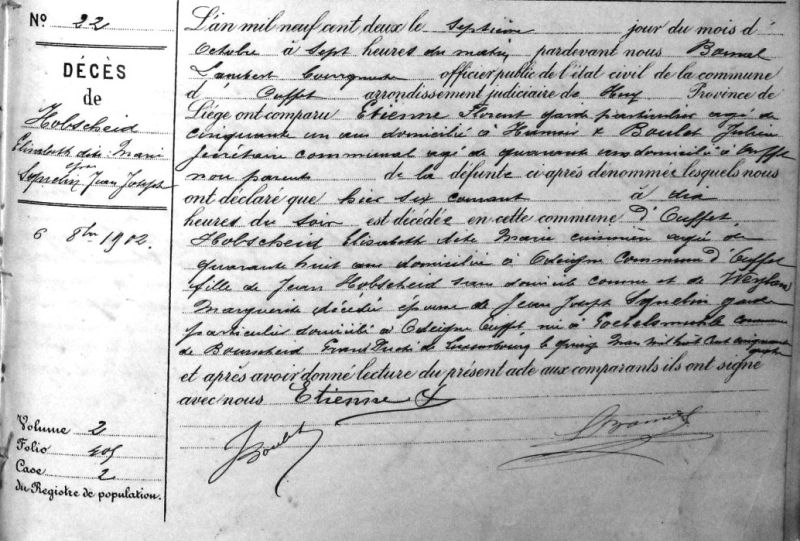 No 22
DÉCÈS
de
Hobscheid
Elisabeth dite Marie
épse
Jean Joseph
6 8bre 1902.
Volume 2
Folio
Case 2
du Registre de population.
L'an mil neuf cent deux le septième jour du mois d'
Octobre à sept heures du matin pardevant nous
Lambert officier public de l'état civil de la commune
d' Ouffet arrondissement judiciaire de Huy Province de
Liége ont comparu Etienne Florent garde particulier agé de
cinquante un ans domicilié à Hamoir & Boulet Julien
secrétaire communal agé de quarante ans domicilié à Ouffet
non parents de la défunte ci après dénommée lesquels nous
ont déclaré que hier six courant à dix
heures du soir est décédée en cette commune d'Ouffet
Hobscheid Elisabeth dite Marie agée de
quarante huit ans domiciliée à Odeigne Commune d'Ouffet
fille de Jean Hobscheid sans domicile connu et de
Marguerite décédée épouse de Jean Joseph garde
particulier domicilié à Odeigne Ouffet, née à Goebelsmuhle commune
de Bourscheid Grand Duché de Luxembourg le quinze mars mil huit cent cinquante
quatre
et après avoir donné lecture du présent acte aux comparants ils ont signé
avec nous Etienne F
J Boulet